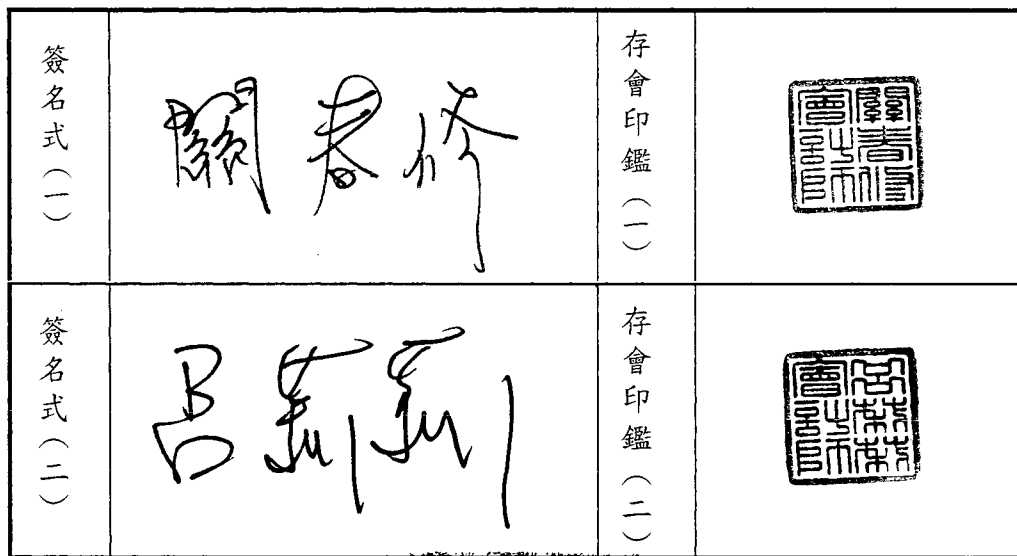 簽名式（一）
關春修
存會印鑑（一）
關春修
會計師
簽名式（二）
呂莉莉
存會印鑑（二）
呂莉莉
會計師